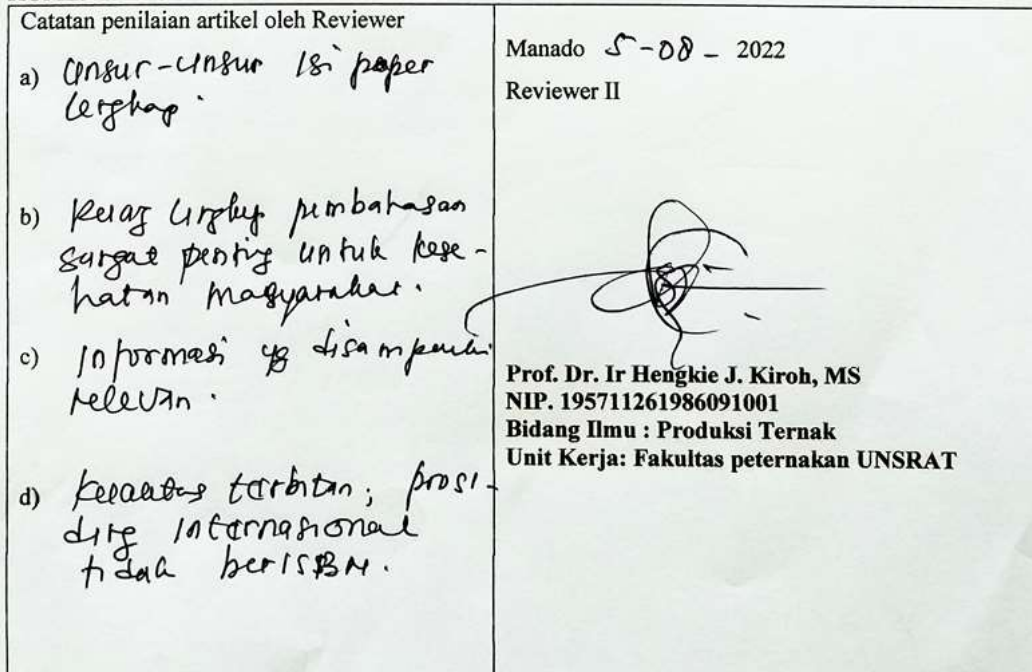 Catatan penilaian artikel oleh Reviewer
a) Unsur-unsur isi paper
lengkap.
b) Ruang lingkup pembahasan
sangat penting untuk kese-
hatan masyarakat.
c) Informasi yg disampaikan
relevan.
d) Kualitas terbitan; prosi-
ding internasional
tidak berISBN.
Manado 5-08- 2022
Reviewer II
Prof. Dr. Ir Hengkie J. Kiroh, MS
NIP. 195711261986091001
Bidang Ilmu : Produksi Ternak
Unit Kerja: Fakultas peternakan UNSRAT